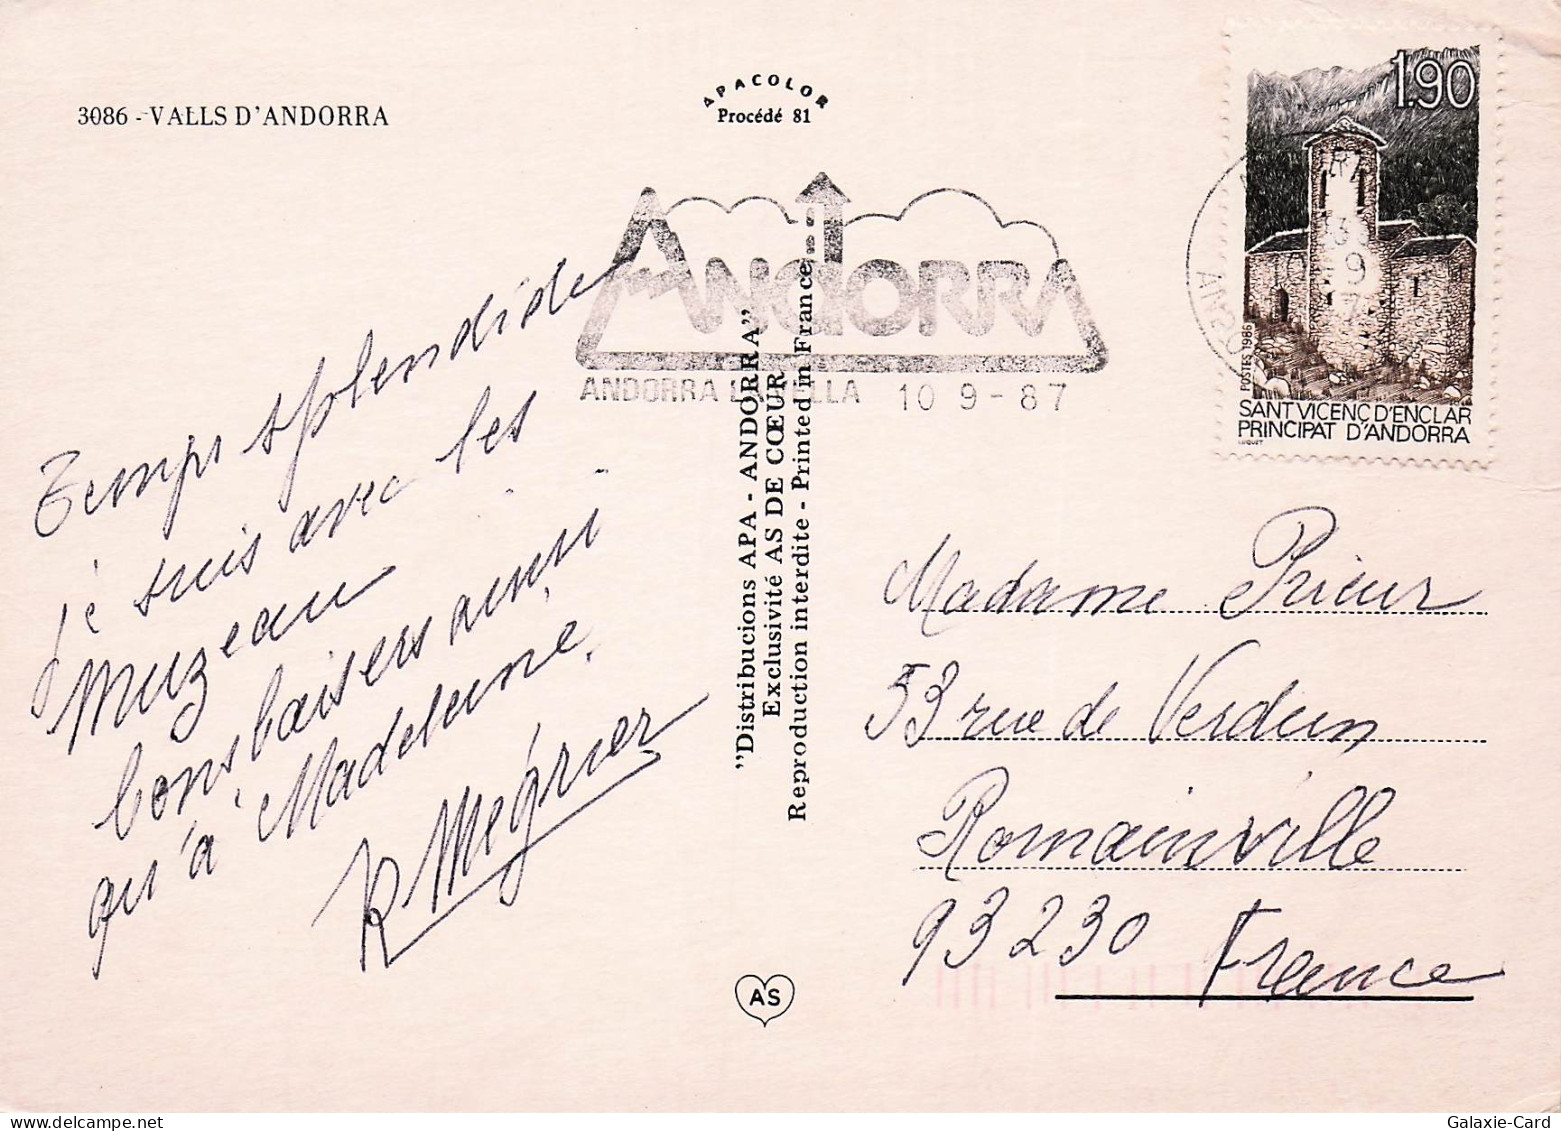 3086 - VALLS D'ANDORRA
APACOLOR
Procédé 81
1.90
POSTES 1986
SANT VICENÇ D'ENCLAR
PRINCIPAT D'ANDORRA
LUQUET
ANDORRA
ANDORRA LA VELLA 10 9 - 87
Temps splendide
je suis avec les
Muzeau
bons baisers ainsi
qu'à Madeleine.
R Mégrier
"Distribucions APA - ANDORRA"
Exclusivité AS DE CŒUR
Reproduction interdite - Printed in France
Madame Prieur
53 rue de Verdun
Romainville
93230 France
AS
Galaxie-Card